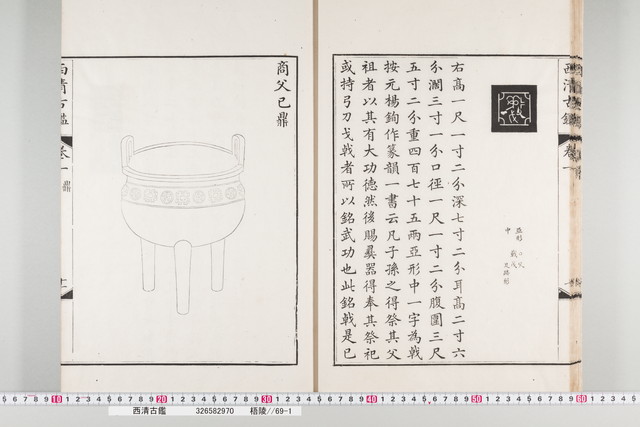 西清古鑑
卷一
亞形
中
右高一尺一寸二分深七寸二分耳高二寸六
分濶三寸一分口徑一尺一寸二分腹圍三尺
五寸二分重四百七十五兩亞形中一字為戟
按元楊鉤作篆韻一書云凡子孫之得祭其父
祖者以其有大功德然後賜彛器得奉其祭祀
或持弓刀戈戟者所以銘武功也此銘戟是已
商父己鼎
西清古鑑
卷一 鼎
西清古鑑 326582970 梧陵//69-1